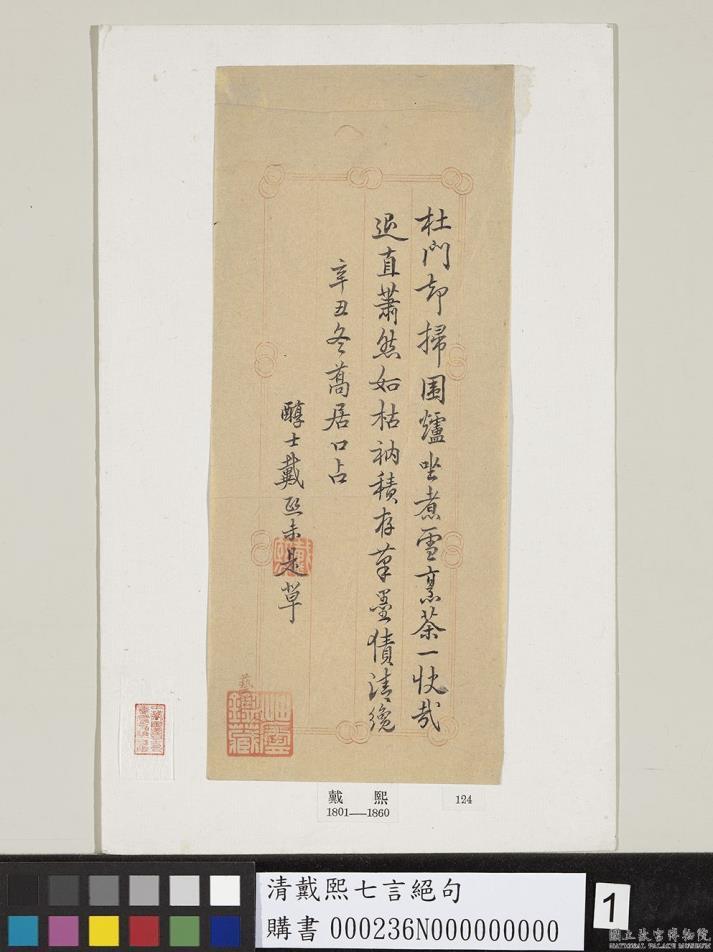 杜門却掃圍爐坐煮雪烹茶一快哉
退直蕭然如枯衲積存筆墨債清纔
辛丑冬蒿居口占
醇士戴熙未是草
戴 熙
1801—1860
124
清戴熙七言絕句
購書 000236N000000000
1
國立故宮博物院
NATIONAL PALACE MUSEUM